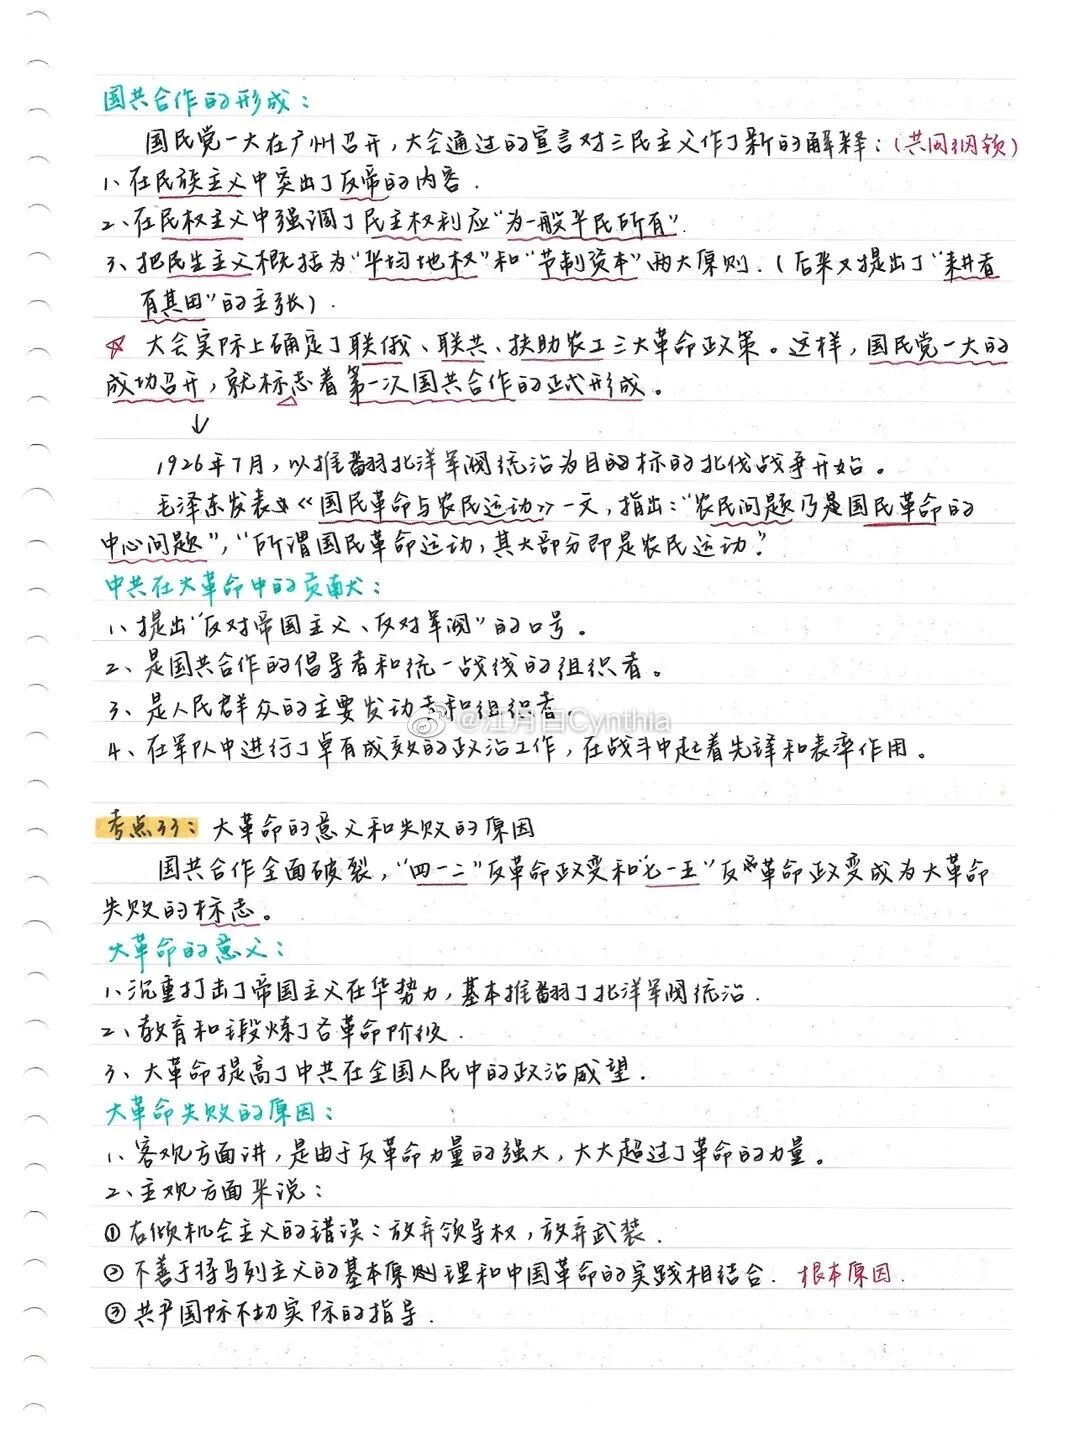 国共合作的形成：
国民党一大在广州召开，大会通过的宣言对三民主义作了新的解释：（共同纲领）
1、在民族主义中突出了反帝的内容．
2、在民权主义中强调了民主权利应“为一般平民所有”．
3、把民生主义概括为“平均地权”和“节制资本”两大原则．（后来又提出了“耕者
有其田”的主张）．
☆ 大会实际上确定了联俄、联共、扶助农工三大革命政策。这样，国民党一大的
成功召开，就标志着第一次国共合作的正式形成。
↓
1926年7月，以推翻北洋军阀统治为目的标的北伐战争开始。
毛泽东发表《国民革命与农民运动》一文，指出：“农民问题乃是国民革命的
中心问题”，“所谓国民革命运动，其大部分即是农民运动”．
中共在大革命中的贡献：
1、提出“反对帝国主义、反对军阀”的口号。
2、是国共合作的倡导者和统一战线的组织者。
3、是人民群众的主要发动者和组织者．
@江月白Cynthia
4、在军队中进行了卓有成效的政治工作，在战斗中起着先锋和表率作用。
考点33：大革命的意义和失败的原因
国共合作全面破裂，“四一二”反革命政变和“七一五”反革命政变成为大革命
失败的标志。
大革命的意义：
1、沉重打击了帝国主义在华势力，基本推翻了北洋军阀统治．
2、教育和锻炼了各革命阶级．
3、大革命提高了中共在全国人民中的政治威望．
大革命失败的原因：
1、客观方面讲，是由于反革命力量的强大，大大超过了革命的力量。
2、主观方面来说：
①右倾机会主义的错误：放弃领导权，放弃武装．
②不善于将马列主义的基本原则理和中国革命的实践相结合．根本原因．
③共产国际不切实际的指导．